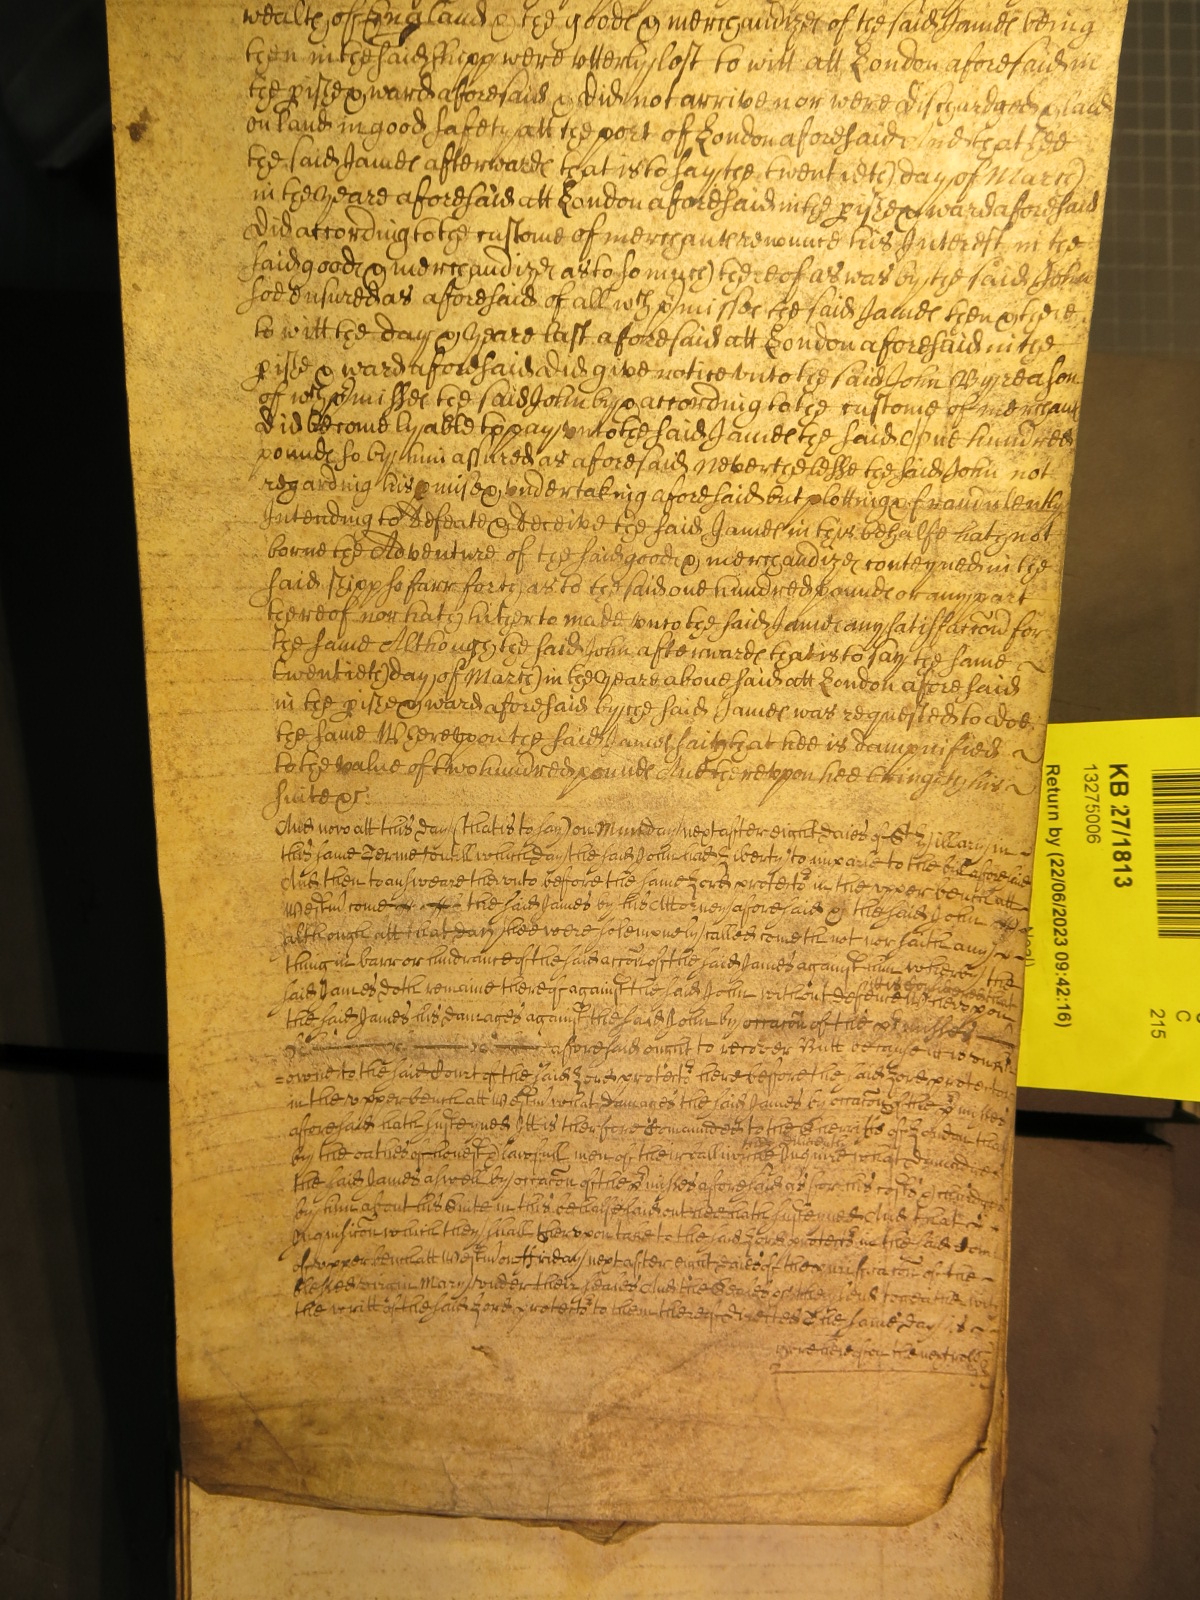 wealth of England & the goods & merchandizes of the said James being
then in the said shipp were utterly lost to witt att London aforesaid in
the pishe & ward aforesaid & did not arrive nor were discharged & laid
on land in good safety att the port of London aforesaid And that hee
the said James afterwards that is to say the twentieth day of March
in the yeare aforesaid att London aforesaid in the pishe & ward aforesaid
did according to the custome of merchants renounce his Interest in the
said goods & merchandizes as to so much thereof as was by the said John
soe ensured as aforesaid of all wch pmisses the said James then & there
to witt the day & yeare last aforesaid att London aforesaid in the
pishe & ward aforesaid did give notice unto the said John By reason
of wch pmisses the said John by & according to the custome of merchants
did become lyable to pay unto the said James the said One hundred
pounds so by him assured as aforesaid Neverthelesse the said John not
regarding his pmise & undertaking aforesaid but plotting & fraudulently
Intending to defeate & deceive the said James in this behalfe hath not
borne the Adventure of the said goods & merchandizes conteyned in the
said shipp so farr forth as to the said one hundred pounds or any part
thereof nor hath hitherto made unto the said James any satisfaccon for
the same Although the said John afterwards that is to say the same
twentieth day of March in the yeare abovesaid att London aforesaid
in the pishe & ward aforesaid by the said James was requested to doe
the same Whereupon the said James saith that hee is dampnified
to the value of two hundred pounds And thereupon hee bringeth his
suite &c:
And now att this day (that is to say) on Munday next after eight daies of St Hillary in
this same Terme untill which day the said John had liberty to imparle to the bill aforesaid
And then to answeare thereunto before the same Lord protector in the upper bench att
Westm come the said James by his Attorney aforesaid & the said John
although att that day hee were solempnely called cometh not nor saith any
thing in barr or hindrance of the said accon of the said James against him whereby the
said James doth remaine thereof against the said John without defence
the said James his damages against the said John by occacon of the pmisses
aforesaid ought to recover Butt because it is unkn
=owne to the said Court of the said Lord protector here before the said Lord protector
in the upper bench att Westm what damages the said James by occacon of the pmisses
aforesaid hath susteyned It is therefore Comaunded to the Sherriffs of London that
by the oathes of honest & lawfull men of their bailiwick they diligently Inquire what damages
the said James aswell by occacon of the pmisses aforesaid as for his costs & charges
by him about his suite in this behalfe laid out hath susteyned And that
Inquisicon which they shall thereupon take to the said Lord protector in the said Court
of upper bench att Westm on Friday next after eight daies of the purificacon of the
blessed virgin Mary under their seales And the seales of them send together with
the writt of the said Lord protector to them thereof directed The same day is
there
KB 27/1813
13275006
Return by (22/06/2023 09:42:16)
C
215